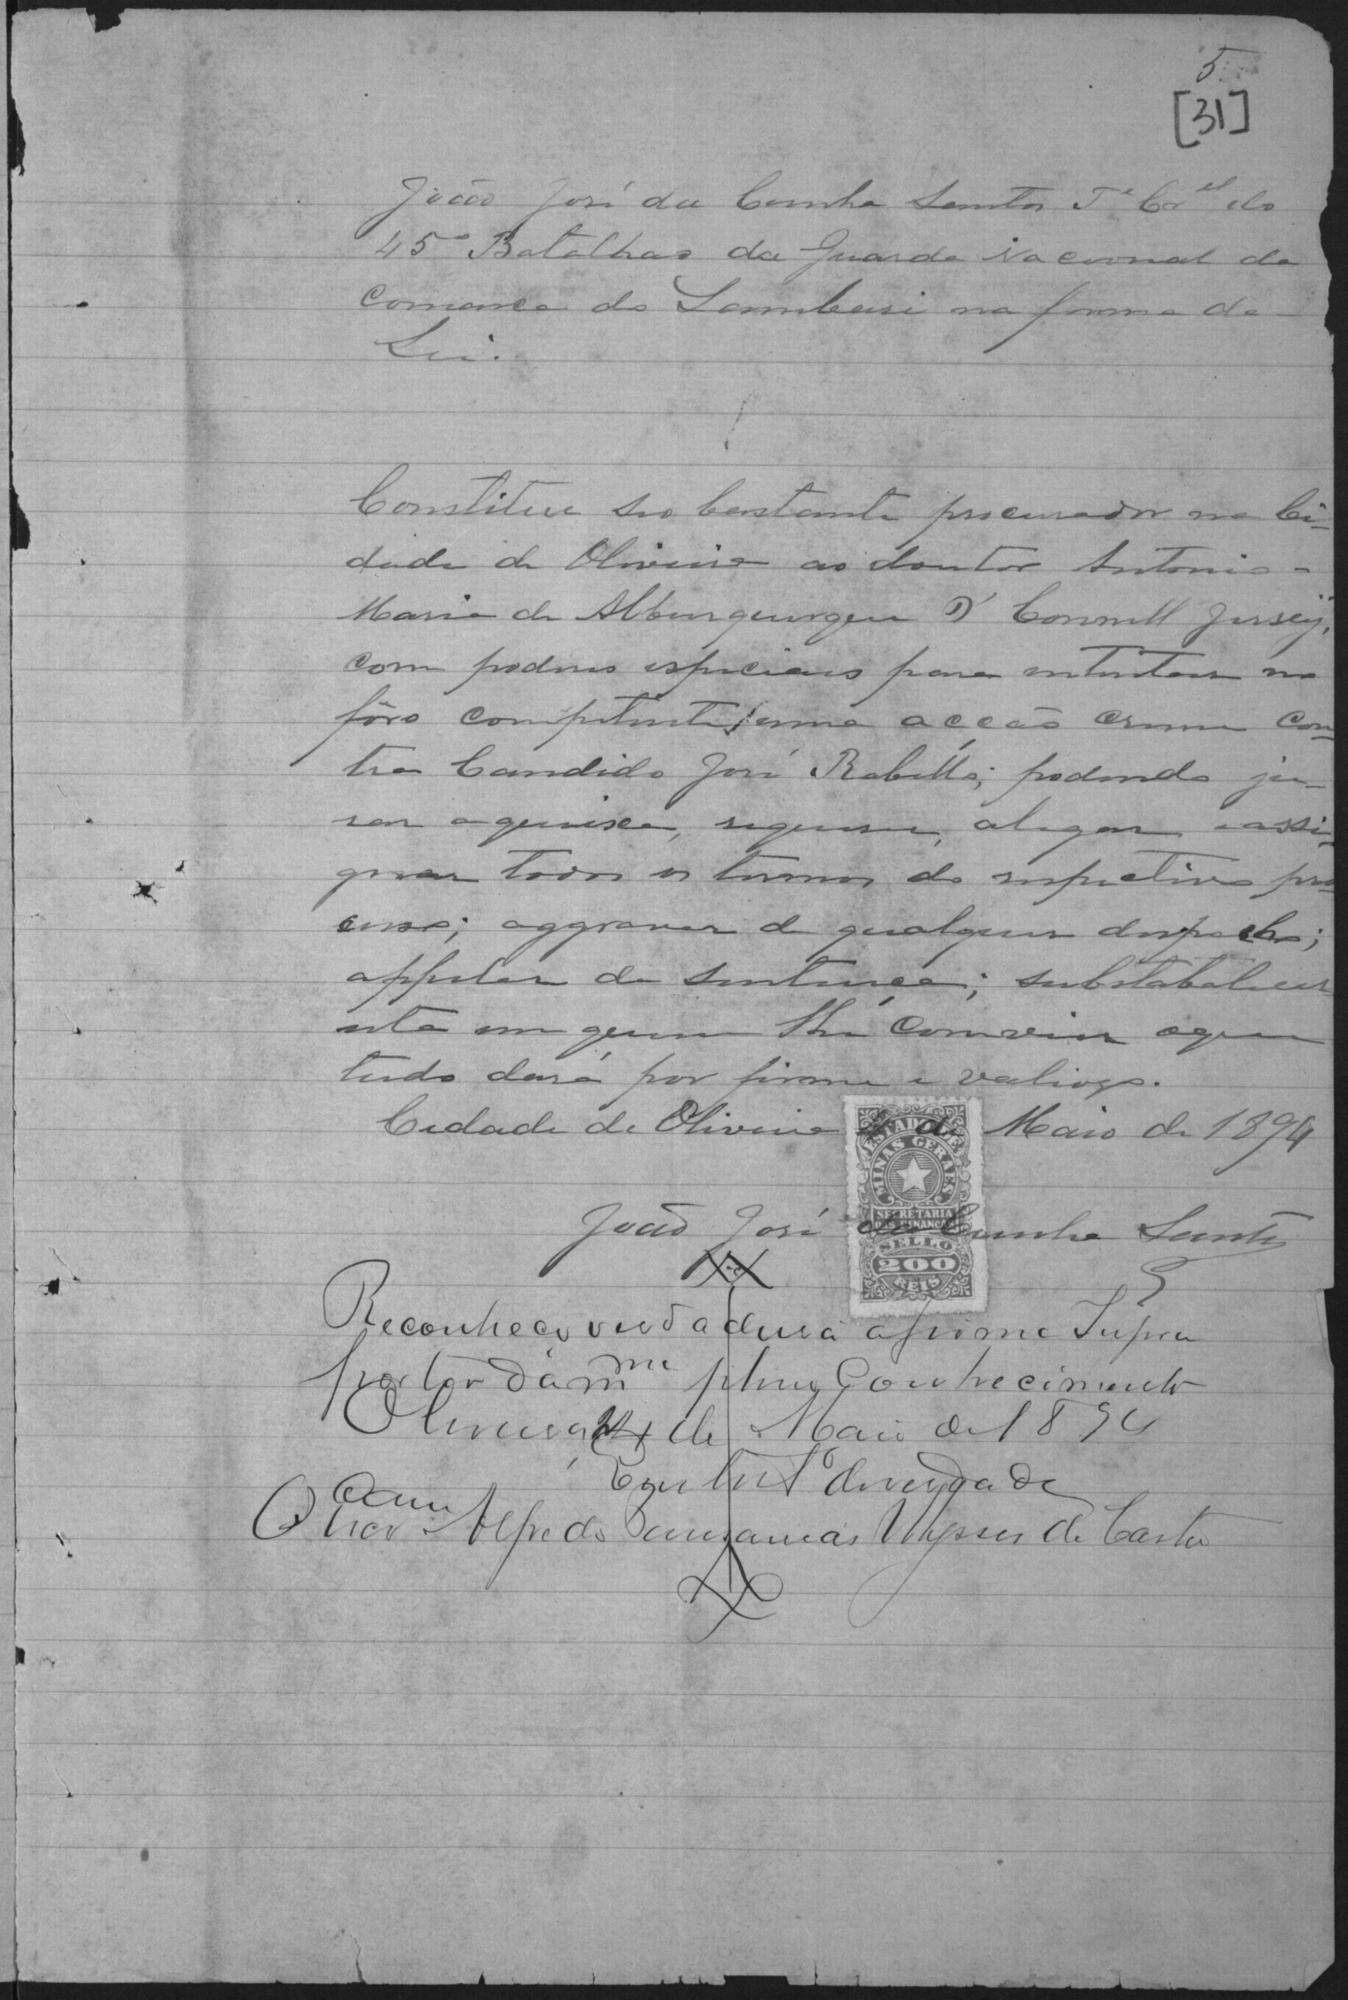 5
[31]
João José da Cunha Santos Tᵉ Cᵒʳᵉˡ do
45º Batalhao da Guarda Nacional da
comarca do Lambari na forma da
Lei.
Constitue seo bastante procurador na Ci-
dade de Oliveira ao doutor Antonio
Maria de Alburquerque O' Connell Jersey,
com poderes especiaes para intentar no
fôro competente, uma acção crime con-
tra Candido José Rabello; podendo ju-
rar a queixa, requerer, alegar e assi-
gnar todos os termos do respectivo pro-
cesso; aggravar de qualquer despacho;
appelar da sentença; substabelecer
esta em quem lhe convier o que
tudo dará por firme e valioso.
Cidade de Oliveira de Maio de 1894
João José da Cunha Santos
ESTADO DE
MINAS GERAES
SECRETARIA
DAS FINANÇAS
SELLO
200
REIS
Reconheço verdadeira a firma Supra
por ter da mᵐᵃ pleno Conhecimento
Oliveira de Maio de 1894
Em testº de verdade
O Alfredo Ulysses de Castro